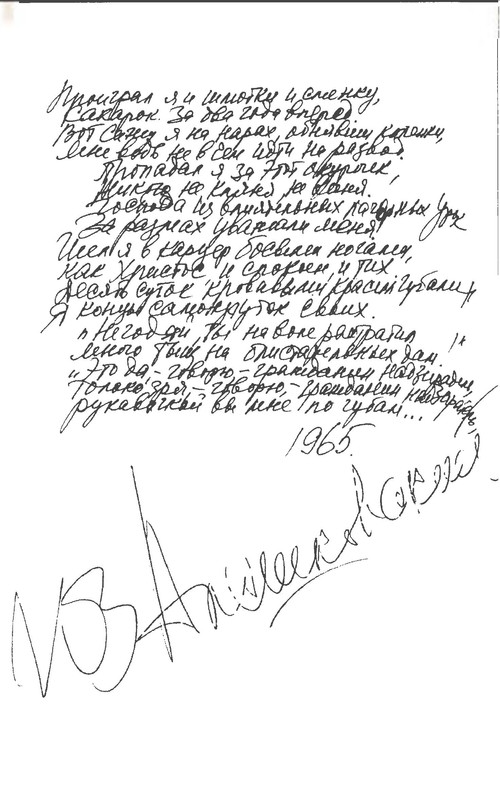 Проиграл я и шмотки и сменку,
Сахарок. За два года вперед.
Вот сижу я на нарах, обнявши коленки,
Мне ведь не в чем идти на развод.
Пропадал я за этот окурочек,
Никого не кляня не виня.
Господа из влиятельных лагерных урок
За размах уважали меня.
Шел я в карцер босыми ногами,
Как Христос и спокоен и тих
Десять суток кровавыми красил губами
Я концы самокруток своих.
"Негодяй, ты на воле растратил
Много тыщ на блистательных дам!"
"Это да, - говорю, - гражданин надзиратель,
Только зря, - говорю, - гражданин надзиратель,
рукавичкой вы мне по губам...
1965
Юз Алешковский